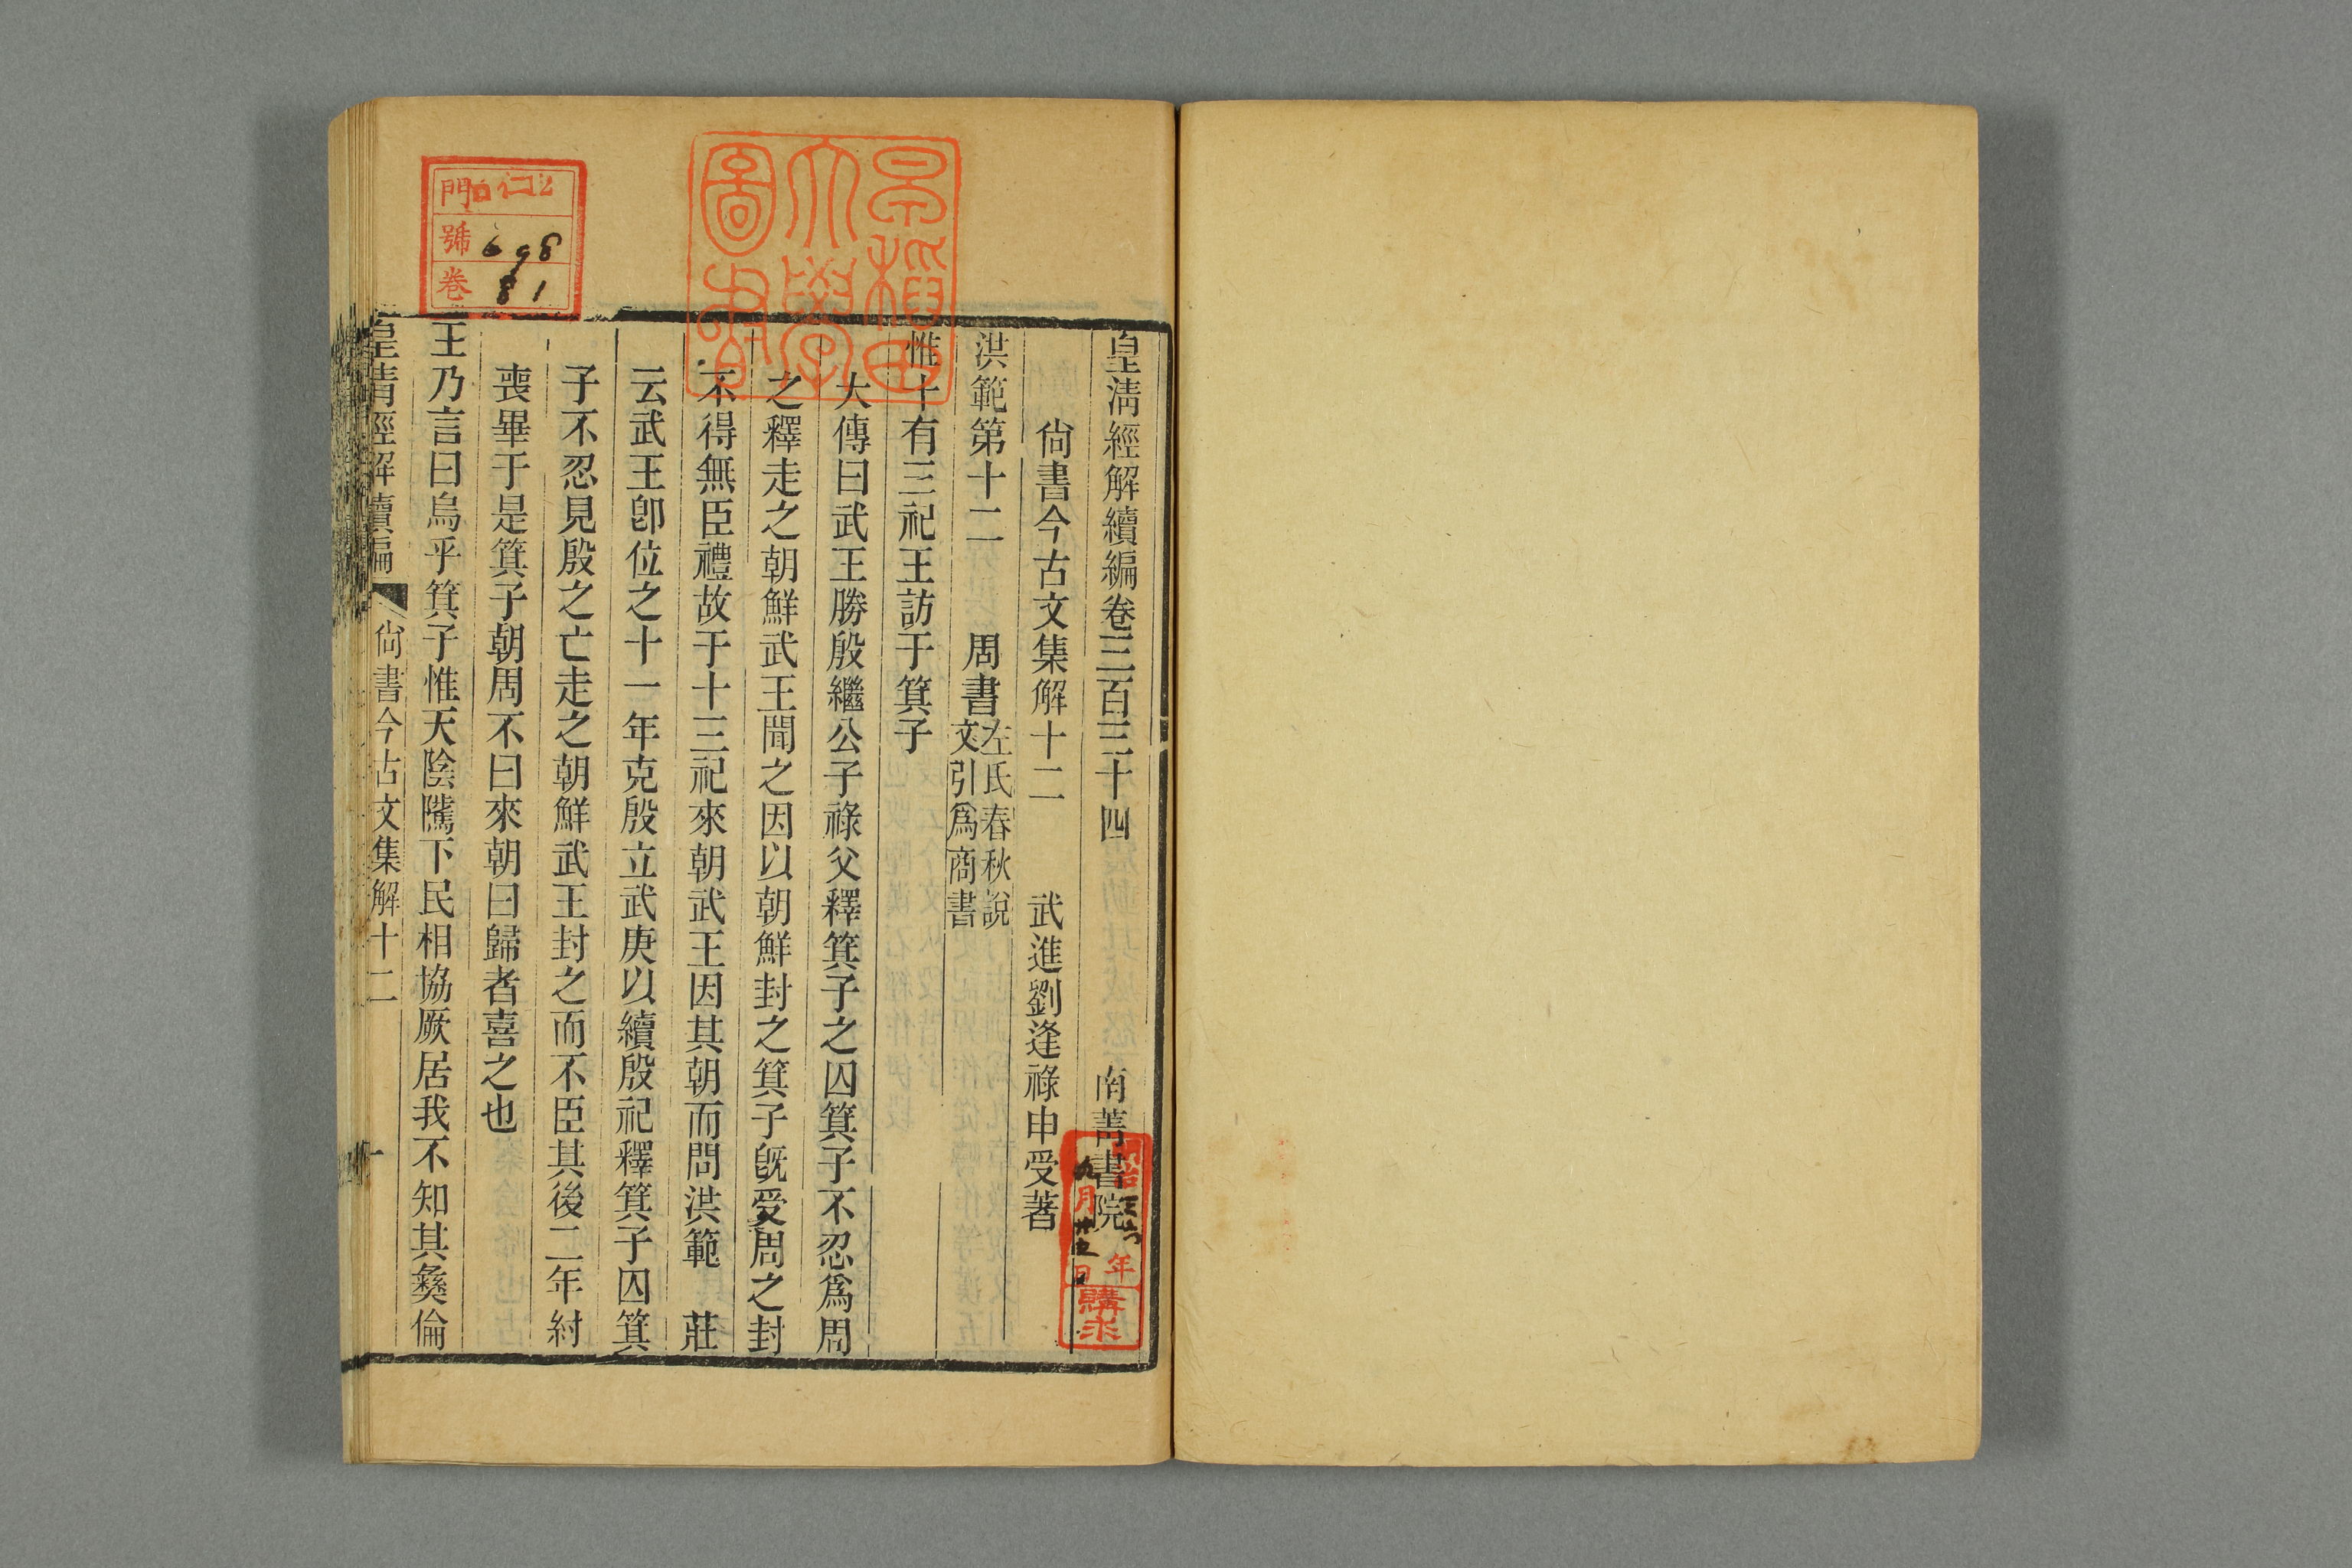 皇清經解續編卷三百三十四　南菁書院
尙書今古文集解十二　武進劉逢祿申受著
洪範第十二　周書左氏春秋說文引爲商書
惟十有三祀王訪于箕子
大傳曰武王勝殷繼公子祿父釋箕子之囚箕子不忍爲周
之釋走之朝鮮武王聞之因以朝鮮封之箕子旣受周之封
不得無臣禮故于十三祀來朝武王因其朝而問洪範　莊
云武王卽位之十一年克殷立武庚以續殷祀釋箕子囚箕
子不忍見殷之亡走之朝鮮武王封之而不臣其後二年紂
喪畢于是箕子朝周不曰來朝曰歸者喜之也
王乃言曰烏乎箕子惟天陰隲下民相協厥居我不知其彝倫
皇清經解續編　尙書今古文集解十二　一
早稻田大學圖書
門 仁12
號 698
卷 81
年九月廿五日購求